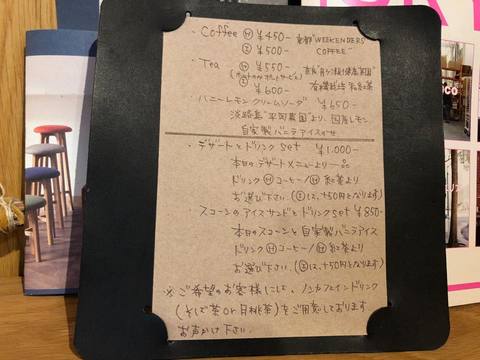 ・Coffee Ⓗ ¥450- 京都"WEEKENDERS
Ⓘ ¥500- COFFEE"
・Tea Ⓗ ¥550-
Ⓘ ¥600- 有機栽培 和紅茶
ハニーレモンクリームソーダ ¥650-
淡路島"平岡農園"より、国産レモン
自家製バニラアイスのせ
・デザートとドリンクset ¥1.000-
本日のデザートメニューより一品
ドリンクⒽコーヒー/Ⓗ紅茶より
お選び下さい。(Ⓘは、+50円となります)
・スコーンのアイスサンドとドリンクset ¥850-
本日のスコーンと自家製バニラアイス
ドリンクⒽコーヒー/Ⓗ紅茶より
お選び下さい。(Ⓘは、+50円となります)
※ご希望のお客様にして、ノンカフェインドリンク
(そば茶or月桃茶)をご用意しております
お声かけ下さい。